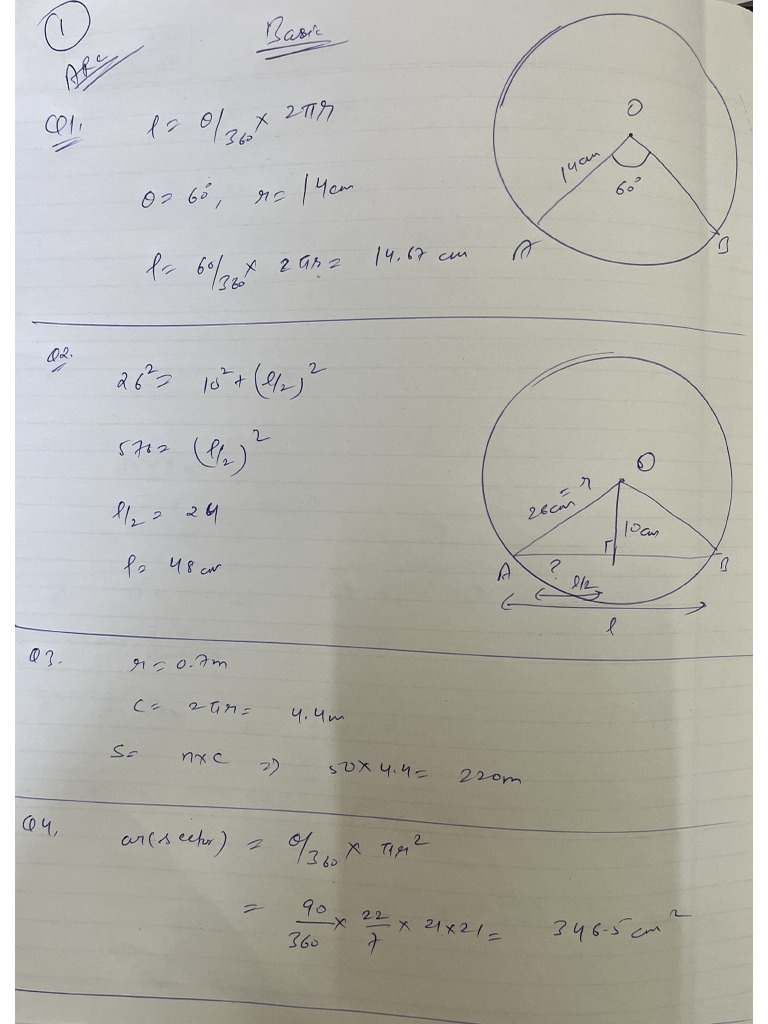 1
Arc
Basic
Q1. l = θ/360 × 2πr
θ = 60°, r = 14cm
l = 60/360 × 2πr = 14.67 cm
O
14cm
60°
A
B
Q2.
26² = 10² + (l/2)²
576 = (l/2)²
l/2 = 24
l = 48 cm
O
26cm = r
10cm
A
B
?
l/2
l
Q3. r = 0.7m
C = 2πr = 4.4m
S = n×C ⇒ 50×4.4 = 220m
Q4. ar(sector) = θ/360 × πr²
= 90/360 × 22/7 × 21×21 = 346.5 cm²